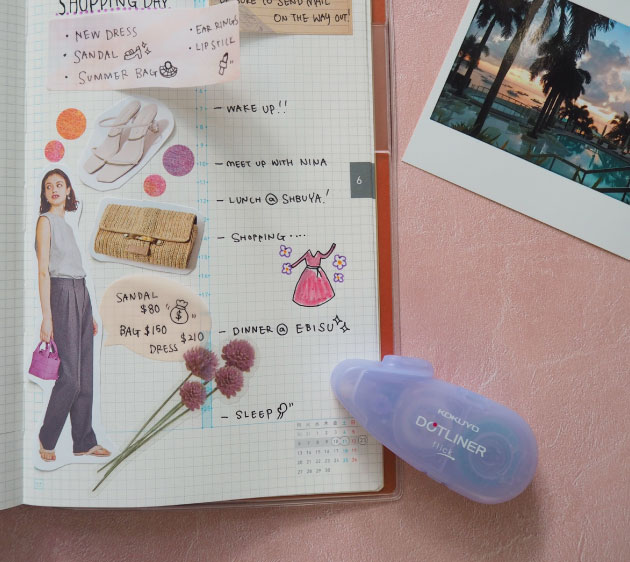 SHOPPING DAY
• NEW DRESS
• SANDAL
• SUMMER BAG
• EAR RINGS
• LIPSTICK
TO SEND MAIL
ON THE WAY OUT
– WAKE UP!!
– MEET UP WITH NINA
6
– LUNCH @ SHBUYA!
– SHOPPING ....
SANDAL
$80
BAG $150
DRESS $210
– DINNER @ EBISU
– SLEEP
KOKUYO
DOTLINER
flick